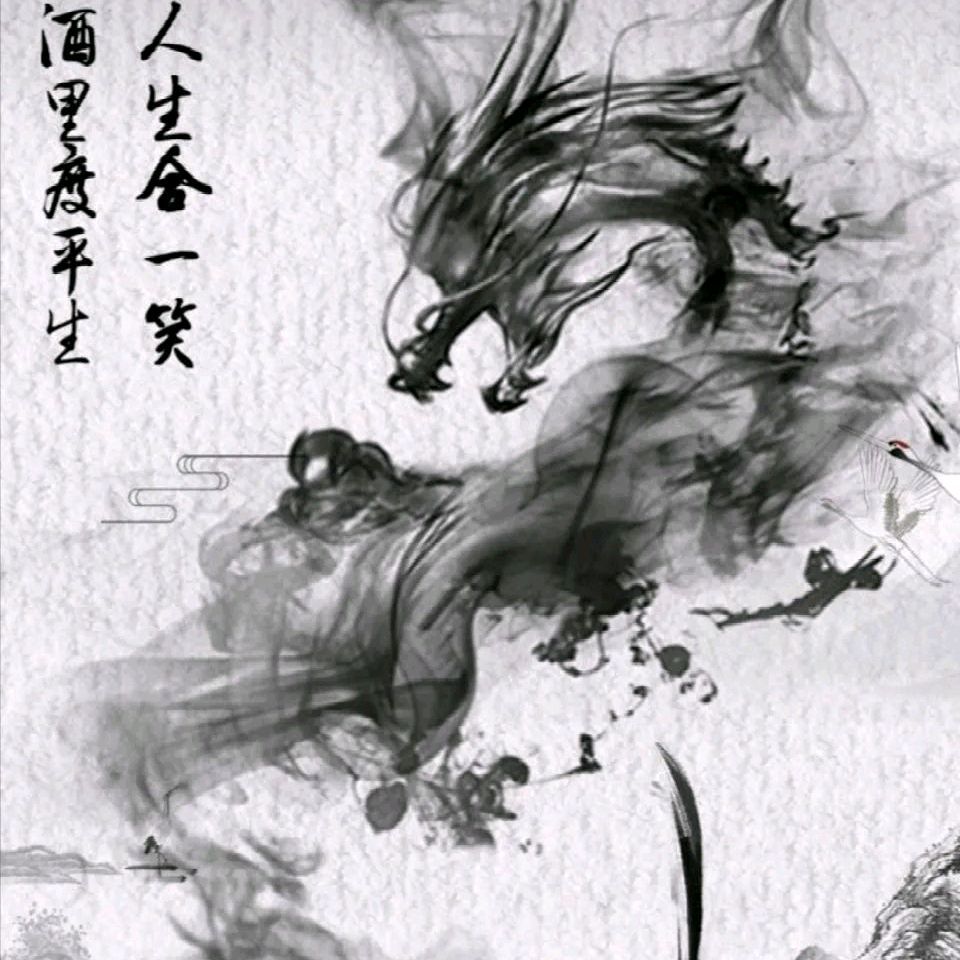 人生合一笑
酒里度平生